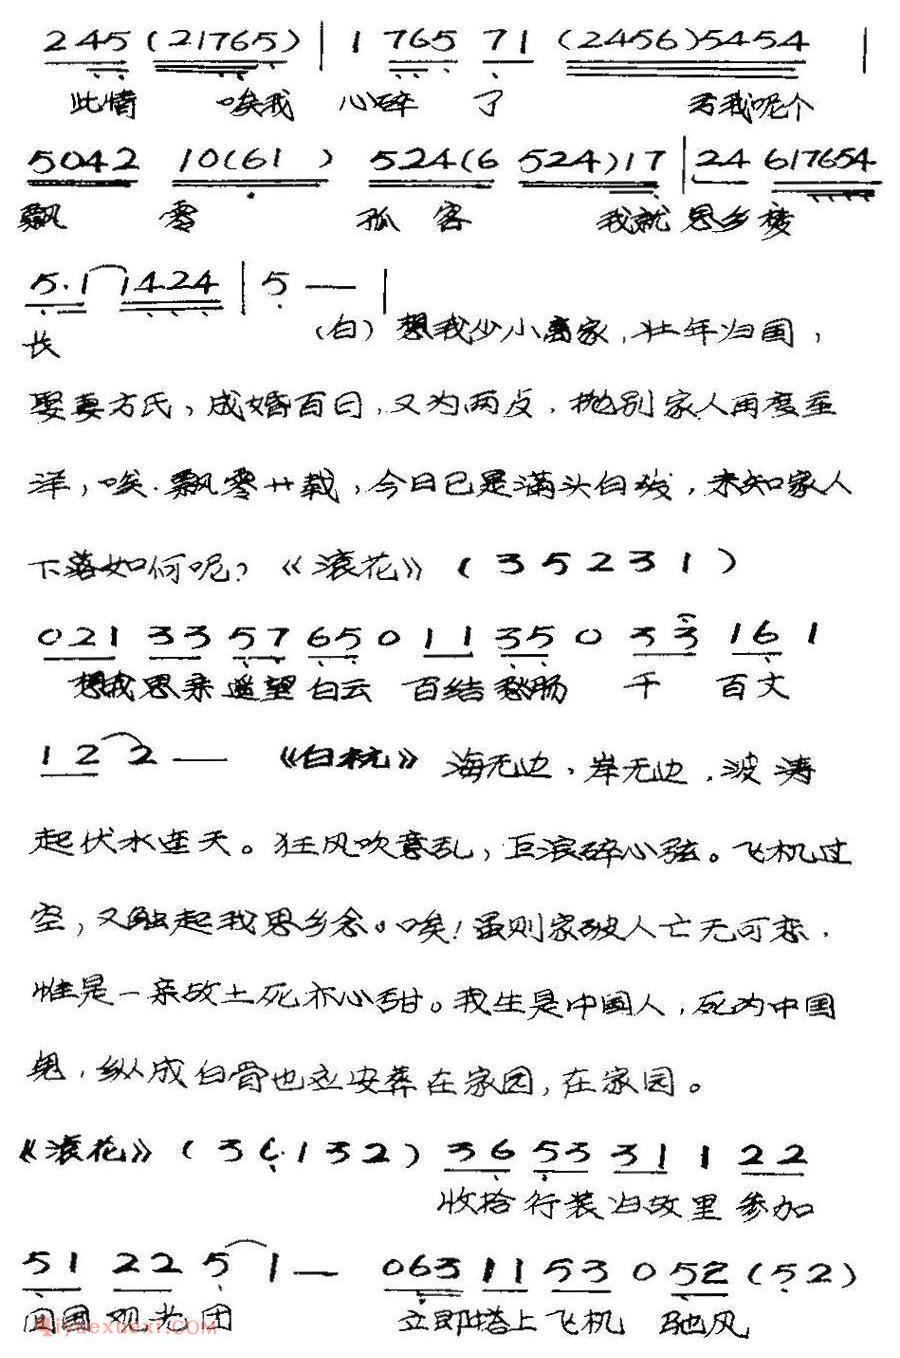 245 (21765) | 1 765 71 (2456)5454 |
此情 唉我 心碎 了 若我呢个
5042 10(61 ) 524(6 524)17 | 24 617654
飘 零 孤 客 我就 思乡
5·1 1424 | 5 — |
长 （白）想我少小离家，壮年归国，
娶妻方氏，成婚百日，又为两歺，抛别家人再度
洋，唉·飘零廿载，今日已是满头白发，未知家人
下落如何呢？《滚花》（35231）
021 33 57 65 0 11 35 0 33 16 1
想我思亲遥望白云 百结愁肠 千 百丈
1 2 2 — 《白杬》海无边，岸无边，波涛
起伏水连天。狂风吹意乱，巨浪碎心弦。飞机过
空，又触起我思乡念。唉！虽则家破人亡无可恋，
惟是一亲故土死亦心甜。我生是中国人，死为中国
鬼，纵成白骨也应安葬在家园，在家园。
《滚花》（36·132）36 53 31 1 22
收拾行装归故里参加
51 22 5 1 — 063 11 53 0 52 (52)
回国观光团 立即搭上飞机 驰风